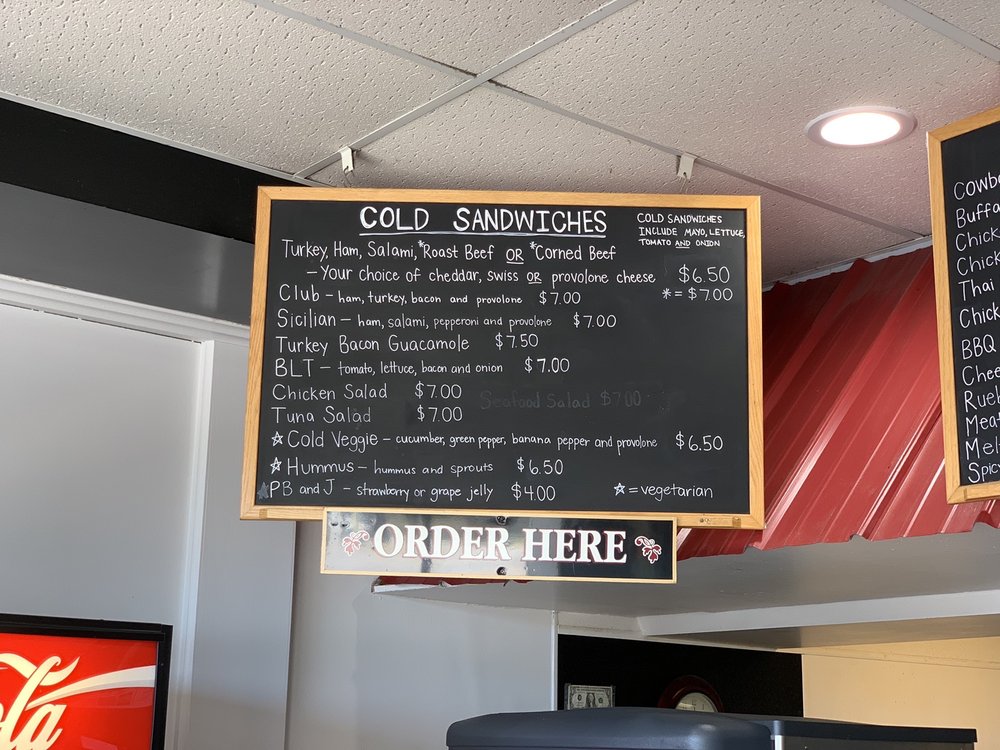 COLD SANDWICHES
COLD SANDWICHES
INCLUDE MAYO, LETTUCE,
TOMATO AND ONION
Turkey, Ham, Salami, *Roast Beef OR *Corned Beef
- Your choice of cheddar, swiss OR provolone cheese $6.50
* = $7.00
Club - ham, turkey, bacon and provolone $7.00
Sicilian - ham, salami, pepperoni and provolone $7.00
Turkey Bacon Guacamole $7.50
BLT - tomato, lettuce, bacon and onion $7.00
Chicken Salad $7.00
Seafood Salad $7.00
Tuna Salad $7.00
☆ Cold Veggie - cucumber, green pepper, banana pepper and provolone $6.50
☆ Hummus - hummus and sprouts $6.50
☆ PB and J - strawberry or grape jelly $4.00
☆ = vegetarian
ORDER HERE
Cowb
Buffa
Chick
Chick
Thai
Chick
BBQ
Chee
Rueb
Meat
Mel
Spic
ola